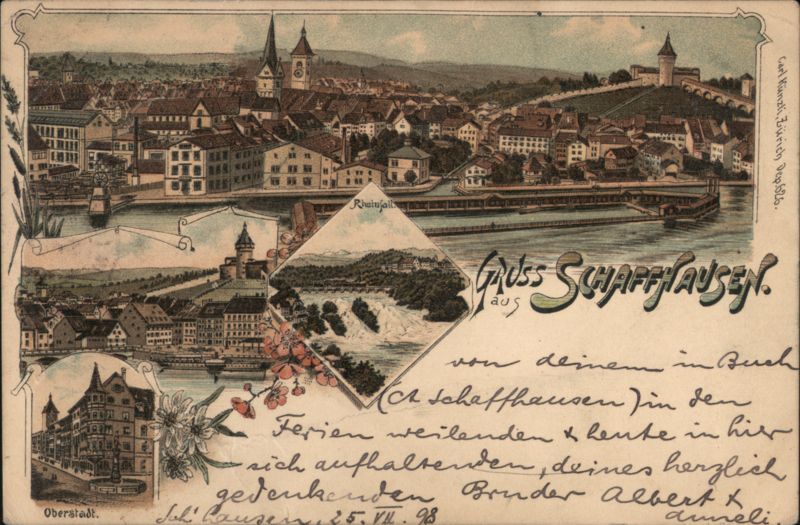 Carl Künzli, Zürich Dep. 1626.
Rheinfall
GRUSS
aus
SCHAFFHAUSEN.
von deinem in Buch
(Ct schaffhausen) in den
Ferien weilenden & heute in hier
sich aufhaltenden, deines herzlich
gedenkenden Bruder Albert &
Sch'hausen, 25. VII. 98
Oberstadt.